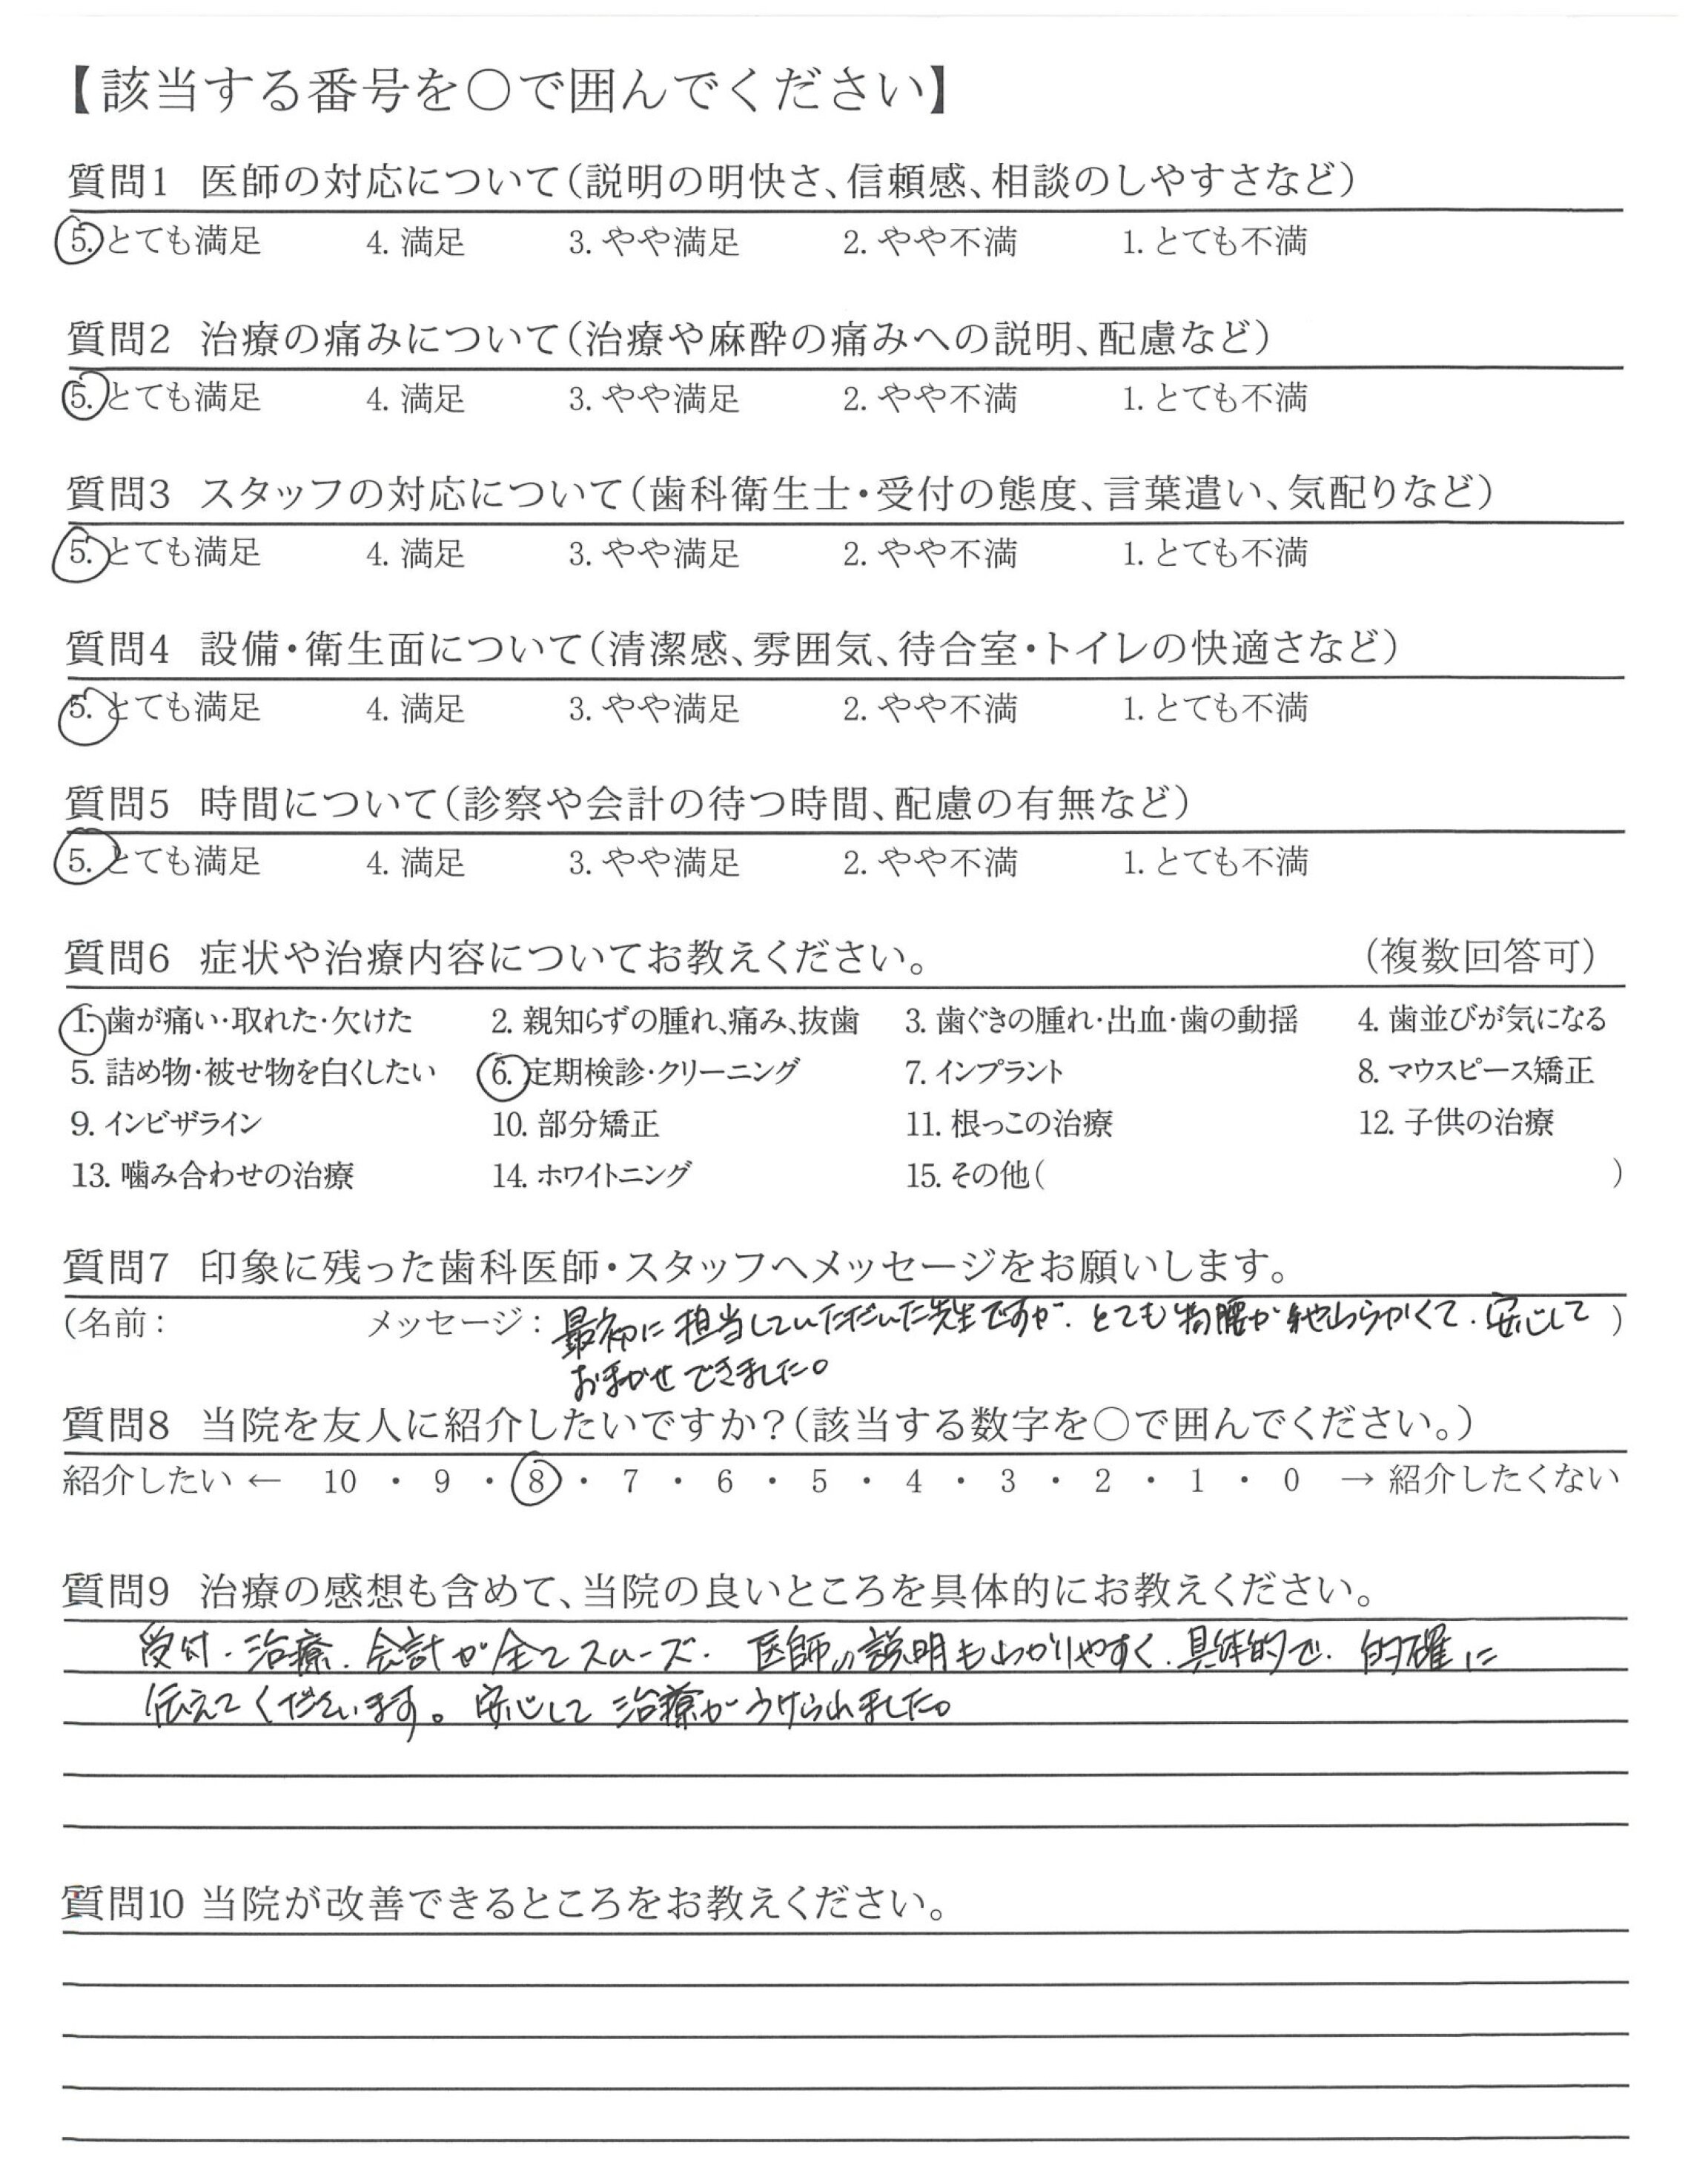 【該当する番号を○で囲んでください】
質問1 医師の対応について（説明の明快さ、信頼感、相談のしやすさなど）
5. とても満足 4. 満足 3. やや満足 2. やや不満 1. とても不満
質問2 治療の痛みについて（治療や麻酔の痛みへの説明、配慮など）
5. とても満足 4. 満足 3. やや満足 2. やや不満 1. とても不満
質問3 スタッフの対応について（歯科衛生士・受付の態度、言葉遣い、気配りなど）
5. とても満足 4. 満足 3. やや満足 2. やや不満 1. とても不満
質問4 設備・衛生面について（清潔感、雰囲気、待合室・トイレの快適さなど）
5. とても満足 4. 満足 3. やや満足 2. やや不満 1. とても不満
質問5 時間について（診察や会計の待つ時間、配慮の有無など）
5. とても満足 4. 満足 3. やや満足 2. やや不満 1. とても不満
質問6 症状や治療内容についてお教えください。 （複数回答可）
1. 歯が痛い・取れた・欠けた 2. 親知らずの腫れ、痛み、抜歯 3. 歯ぐきの腫れ・出血・歯の動揺 4. 歯並びが気になる
5. 詰め物・被せ物を白くしたい 6. 定期検診・クリーニング 7. インプラント 8. マウスピース矯正
9. インビザライン 10. 部分矯正 11. 根っこの治療 12. 子供の治療
13. 噛み合わせの治療 14. ホワイトニング 15. その他（ ）
質問7 印象に残った歯科医師・スタッフへメッセージをお願いします。
（名前： メッセージ： 最初に担当していただいた先生ですが、とても物腰が柔らかくて、安心して ）
おまかせできました。
質問8 当院を友人に紹介したいですか？（該当する数字を○で囲んでください。）
紹介したい ← 10 ・ 9 ・ 8 ・ 7 ・ 6 ・ 5 ・ 4 ・ 3 ・ 2 ・ 1 ・ 0 → 紹介したくない
質問9 治療の感想も含めて、当院の良いところを具体的にお教えください。
受付、治療、会計が全てスムーズ。 医師の説明もわかりやすく、具体的で、的確に
伝えてくださいます。安心して治療がうけられました。
質問10 当院が改善できるところをお教えください。